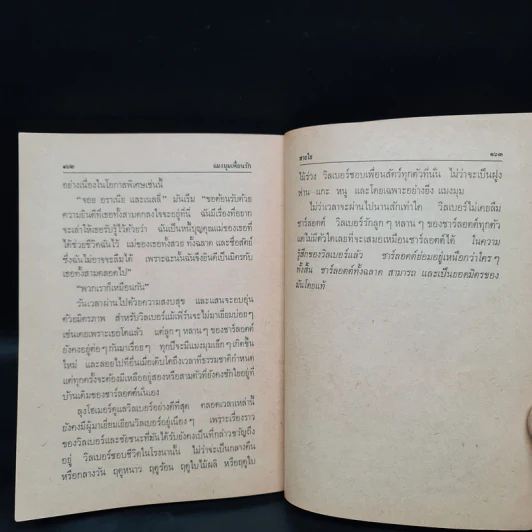 ๑๖๒ แมงมุมเพื่อนรัก
อย่างเนื่องในโอกาสพิเศษเช่นนี้
“จอย อราเนีย และเนลลี” มันเริ่ม “ขอต้อนรับด้วย
ความยินดีที่เธอทั้งสามตกลงใจจะอยู่ที่นี่ ฉันมีเรื่องที่อยาก
จะเล่าให้เธอรับรู้ไว้ด้วยว่า ฉันเป็นหนี้บุญคุณแม่ของเธอที่
ได้ช่วยชีวิตฉันไว้ แม่ของเธอทั้งสวย ทั้งฉลาด และซื่อสัตย์
ซึ่งฉันไม่อาจจะลืมได้ เพราะฉะนั้นฉันจึงยินดีเป็นมิตรกับ
เธอทั้งสามตลอดไป”
“พวกเราก็เหมือนกัน”
วันเวลาผ่านไปด้วยความสงบสุข และแสนจะอบอุ่น
ด้วยมิตรภาพ สำหรับวิลเบอร์แม้เฟิร์นจะไม่มาเยี่ยมบ่อยๆ
เช่นเคยเพราะเธอโตแล้ว แต่ลูกๆ หลานๆ ของชาร์ลอตต์
ยังคงอยู่ต่อๆ กันมาเรื่อยๆ ทุกปีจะมีแมงมุมเล็กๆ เกิดขึ้น
ใหม่ และลอยไปที่อื่นเมื่อเติบโตถึงเวลาที่ธรรมชาติกำหนด
แต่ทุกครั้งจะต้องมีเหลืออยู่สองหรือสามตัวที่ยังคงชักใยอยู่ที่
บ้านเดิมของชาร์ลอตต์นั่นเอง
ลุงโฮเมอร์ดูแลวิลเบอร์อย่างดีที่สุด ตลอดเวลาเหล่านี้
ยังคงมีผู้มาเยี่ยมเยือนวิลเบอร์อยู่เนืองๆ เพราะเรื่องราว
ของวิลเบอร์และชัยชนะที่มันได้รับยังคงเป็นที่กล่าวขวัญถึง
อยู่ วิลเบอร์ชอบชีวิตในโรงนานั้น ไม่ว่าจะเป็นกลางคืน
หรือกลางวัน ฤดูหนาว ฤดูร้อน ฤดูใบไม้ผลิ หรือฤดูใบ
สายใย ๑๖๓
ไม้ร่วง วิลเบอร์ชอบเพื่อนสัตว์ทุกตัวที่นั่น ไม่ว่าจะเป็นฝูง
ห่าน แกะ หนู และโดยเฉพาะอย่างยิ่ง แมงมุม
ไม่ว่าเวลาจะผ่านไปนานสักเท่าใด วิลเบอร์ไม่เคยลืม
ชาร์ลอตต์ วิลเบอร์รักลูกๆ หลานๆ ของชาร์ลอตต์ทุกตัว
แต่ไม่มีตัวใดเลยที่จะเสมอเหมือนชาร์ลอตต์ได้ ในความ
รู้สึกของวิลเบอร์แล้ว ชาร์ลอตต์ย่อมอยู่เหนือกว่าใครๆ
ทั้งสิ้น ชาร์ลอตต์ทั้งฉลาด สามารถ และเป็นยอดมิตรของ
มันโดยแท้